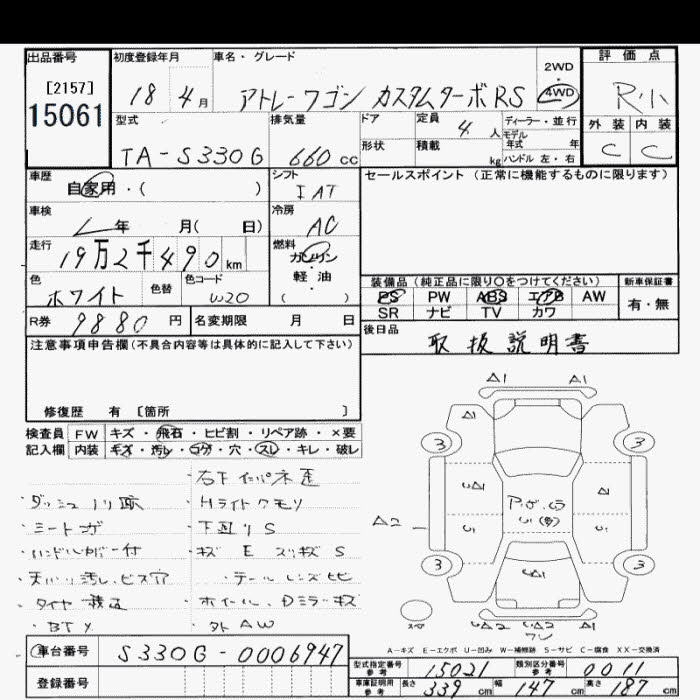 出品番号
[2157]
15061
初度登録年月
18年4月
車名・グレード
アトレーワゴン カスタムターボRS
2WD
・
4WD
評価点
R小
外装 内装
C C
型式
TA-S330G
排気量
660cc
ドア
形状
定員
4人
積載
kg
ディーラー・並行
モデル
年式 年
ハンドル 左・右
車歴
自家用・( )
シフト
IAT
セールスポイント(正常に機能するものに限ります)
車検
年 月( 日)
冷房
AC
走行
19万2千490km
燃料
ガソリン
・
軽油
( )
色
ホワイト
色替
色コード
W20
装備品(純正品に限り○をつけてください)
PS PW ABS エアB AW
SR ナビ TV カワ
新車保証書
有・無
R券 9880円
名変期限 月 日
後日品
取扱説明書
注意事項申告欄(不具合内容等は具体的に記入して下さい)
修復歴 有 [箇所 ]
検査員 FW キズ・飛石・ヒビ割・リペア跡・×要
記入欄 内装 キズ・汚レ・コゲ・穴・スレ・キレ・破レ
・右下インパネ歪
・ダッシュノリ跡 ・Hライトクモリ
・シートコゲ ・下廻りS
・ハンドルカバー付 ・キズ E スリキズ S
・天バリ汚レ、ビス穴 ・テールレンズヒビ
・タイヤ積込 ・ホイール、Dミラーキズ
・BTX ・外AW
A1 A1
A1
3 3
UA1 A1
A2
3 3
UA1
UA1 UA2 A1
ワレ
A-キズ E-エクボ U-凹み W-補修跡 S-サビ C-腐食 XX-交換済
車台番号 S330G-0006947
登録番号
型式指定番号
参考
15021
類別区分番号
参考
0011
車庫証明用
参考
長さ 339cm 幅 147cm 高さ 187cm